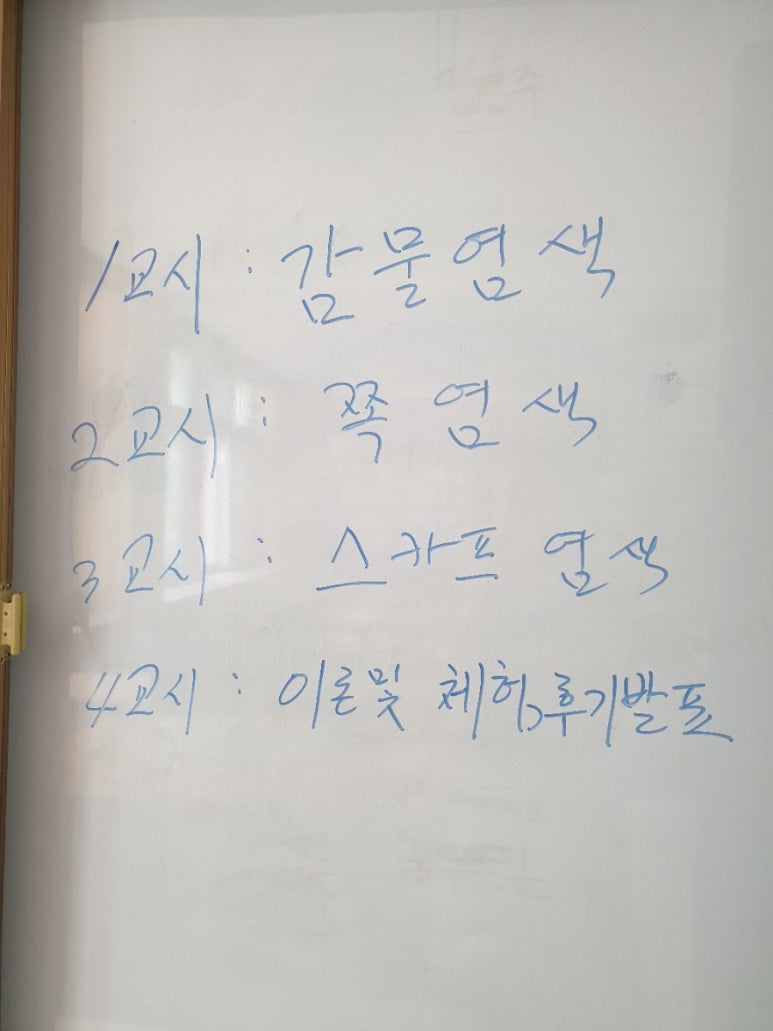 1교시 : 감물염색
2교시 : 쪽 염색
3교시 : 스카프 염색
4교시 : 이론및 체험후기발표